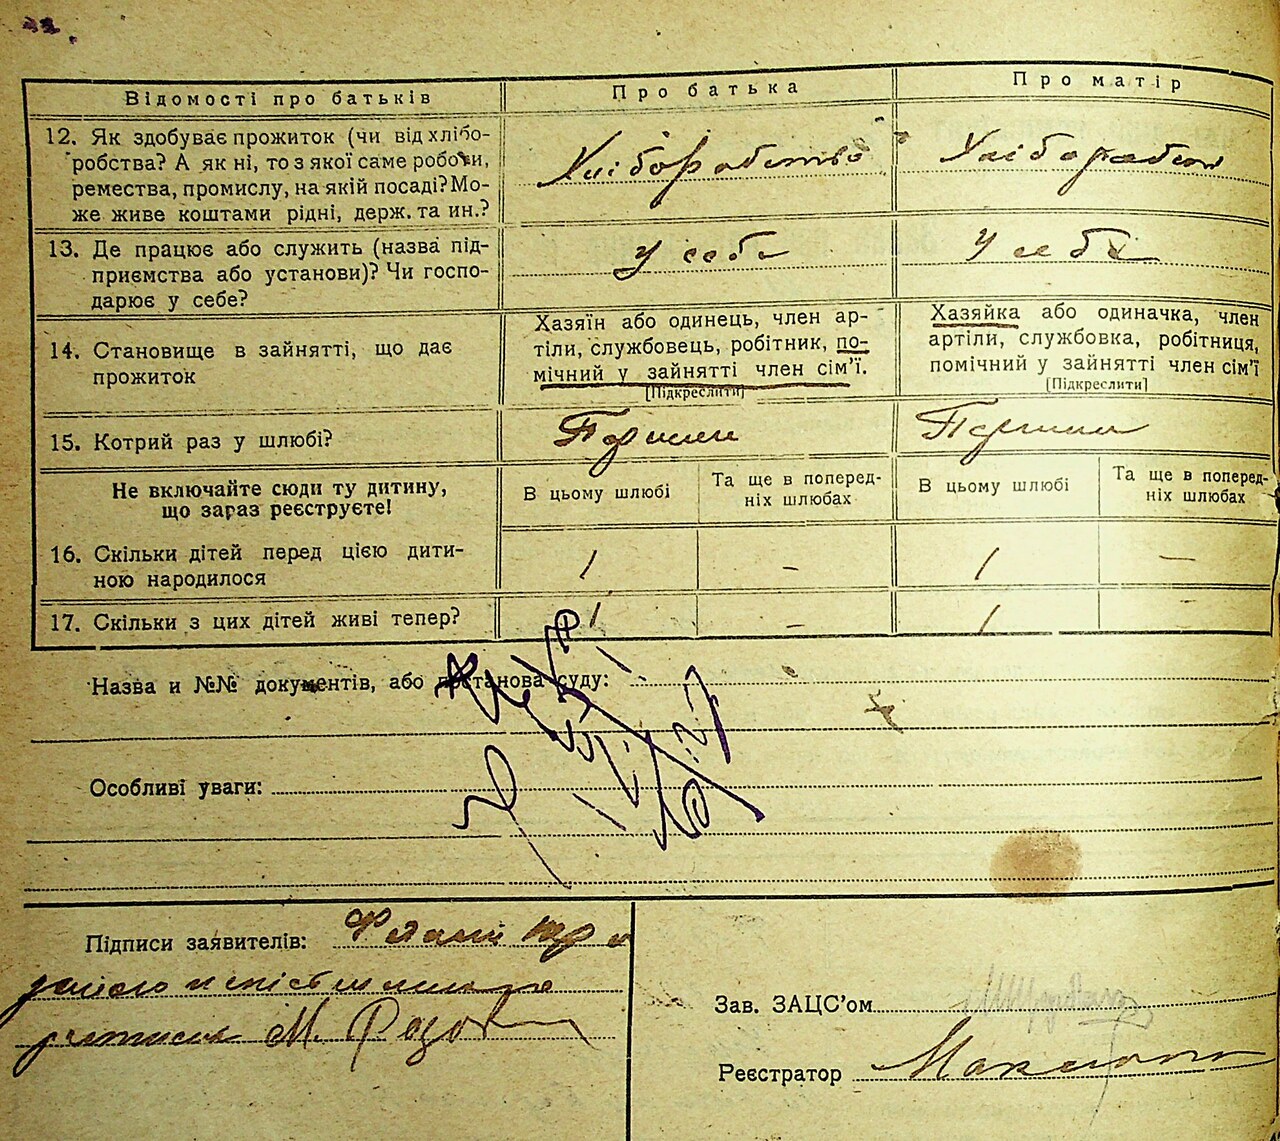 Відомості про батьків
Про батька
Про матір
12. Як здобуває прожиток (чи від хлібо-
робства? А як ні, то з якої саме роботи,
ремества, промислу, на якій посаді? Мо-
же живе коштами рідні, держ. та ин.?
Хліборобство
Хліборобств
13. Де працює або служить (назва під-
приємства або установи)? Чи госпо-
дарює у себе?
у себе
у себе
14. Становище в зайнятті, що дає
прожиток
Хазяїн або одинець, член ар-
тіли, службовець, робітник, по-
мічний у зайнятті член сім’ї.
[Підкреслити]
Хазяйка або одиначка, член
артіли, службовка, робітниця,
помічний у зайнятті член сім’ї
[Підкреслити]
15. Котрий раз у шлюбі?
Перший
Перший
Не включайте сюди ту дитину,
що зараз реєструєте!
В цьому шлюбі
Та ще в поперед-
ніх шлюбах
В цьому шлюбі
Та ще в поперед-
ніх шлюбах
16. Скільки дітей перед цією дити-
ною народилося
1
-
1
-
17. Скільки з цих дітей живі тепер?
1
-
1
-
Назва и №№ документів, або постанова суду:
Особливі уваги:
Підписи заявителів:
М.
Зав. ЗАЦС’ом
Реєстратор